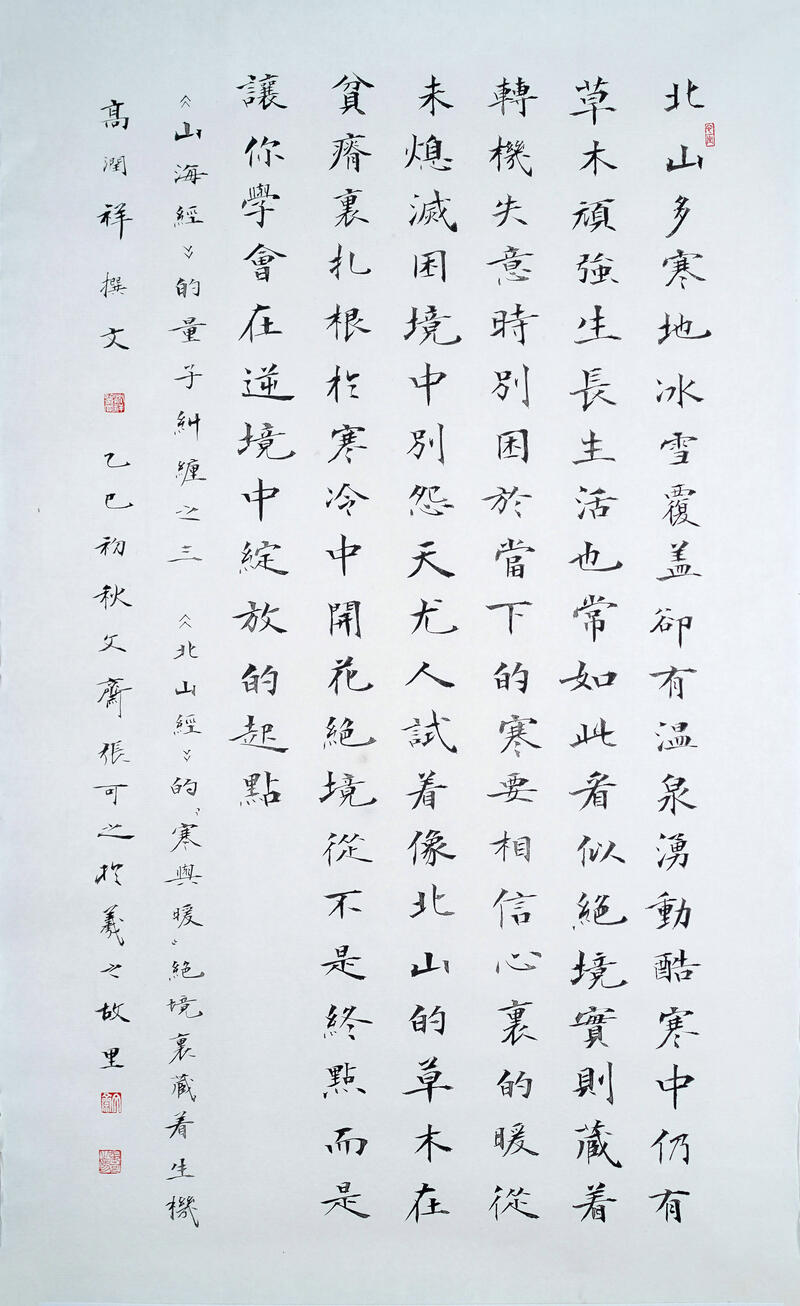 北山多寒地冰雪覆盖卻有温泉湧動酷寒中仍有
草木頑強生長生活也常如此看似絕境實則藏着
轉機失意時別困於當下的寒要相信心裏的暖從
未熄滅困境中別怨天尤人試着像北山的草木在
貧瘠裏扎根於寒冷中開花絕境從不是終點而是
讓你學會在逆境中綻放的起點
《山海經》的量子糾纏之三 《北山經》的“寒與暖”絕境裏藏着生機
高潤祥 撰文 乙巳初秋文齋張可之於羲之故里